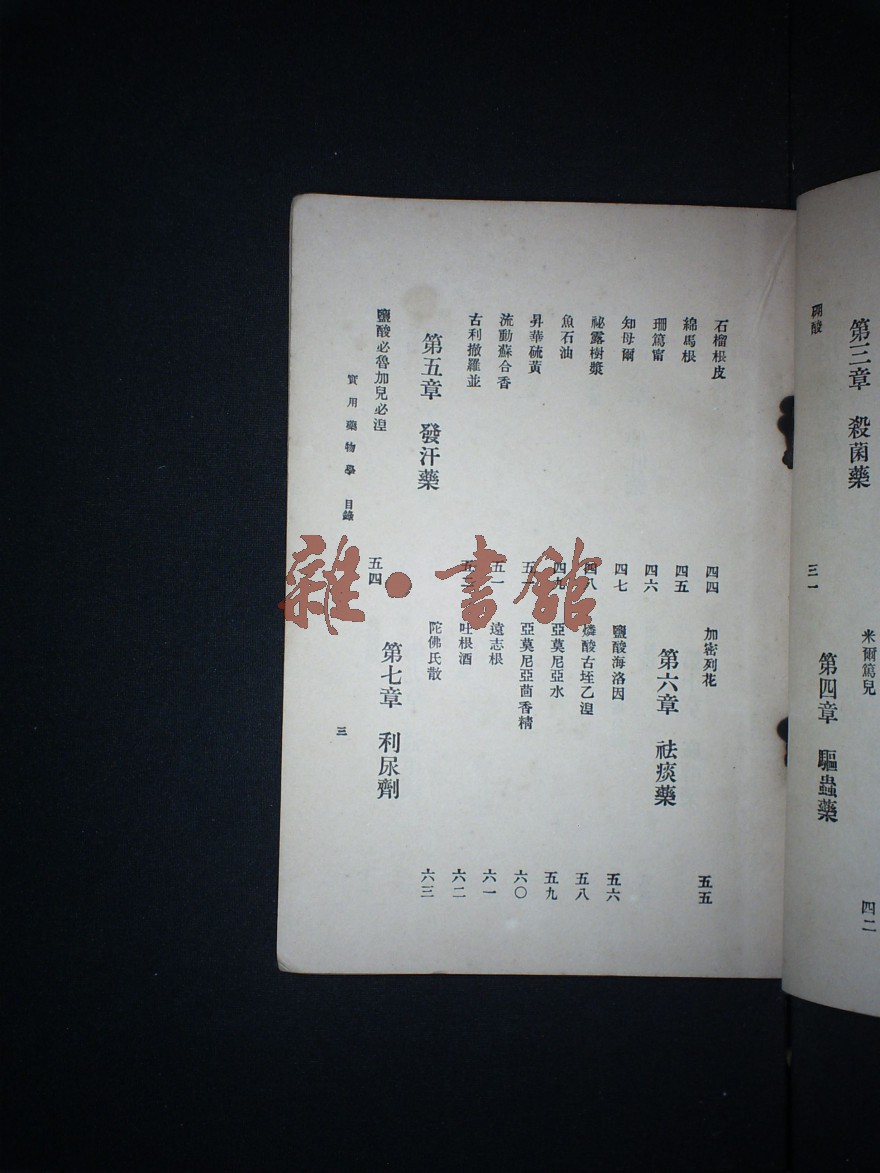 第三章 殺菌藥
硼酸 三一
米爾篤兒 四二
第四章 驅蟲藥
石榴根皮 四四
綿馬根 四五
珊篤甯 四六
知母爾 四七
祕露樹漿 四八
魚石油 四九
昇華硫黃
流動蘇合香 五一
古利撒羅並
第五章 發汗藥
鹽酸必魯加兒必湼 五四
加密列花 五五
第六章 祛痰藥
鹽酸海洛因 五六
燐酸古垤乙湼 五八
亞莫尼亞水 五九
亞莫尼亞茴香精 六〇
遠志根 六一
吐根酒 六二
陀佛氏散 六三
第七章 利尿劑
實用藥物學 目錄 三
雜·書館